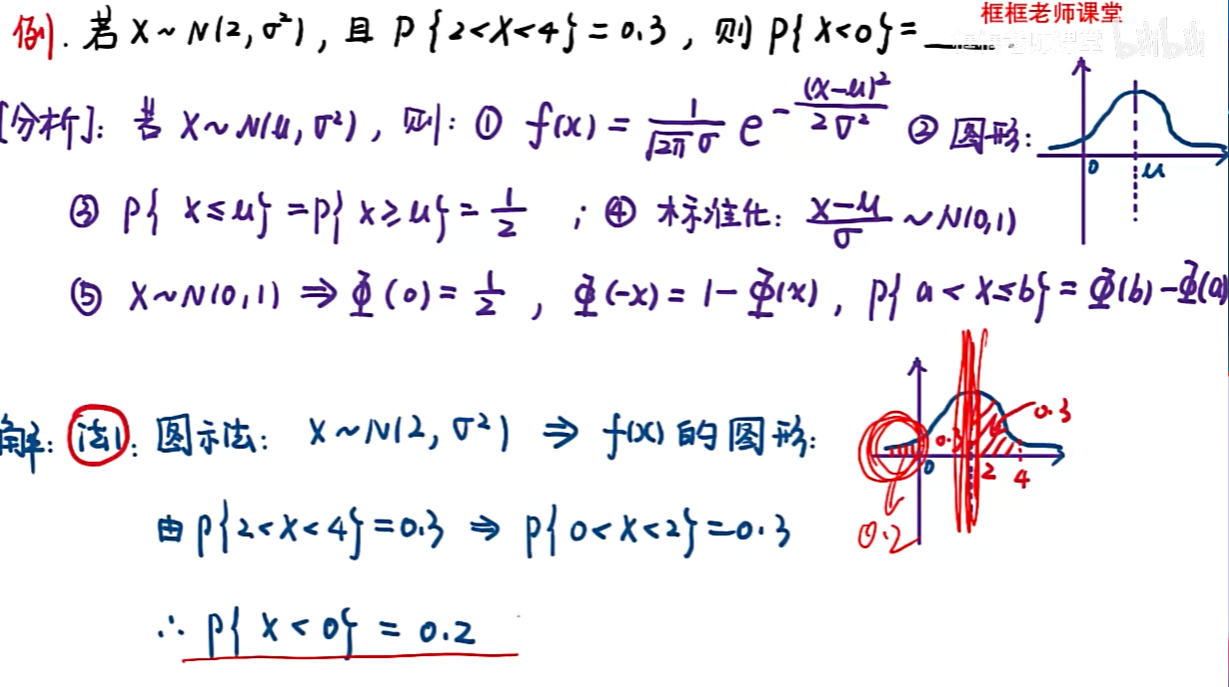 框框老师课堂
例. 若 X~N(2, σ²), 且 P{2<X<4}=0.3, 则 P{X<0}=____.
[分析]: 若 X~N(μ, σ²), 则: ① f(x) = \frac{1}{\sqrt{2π}σ} e^{-\frac{(x-μ)²}{2σ²}} ② 图形:
0 μ
③ P{X≤μ}=P{X≥μ}=\frac{1}{2} ; ④ 标准化: \frac{X-μ}{σ} ~N(0,1)
⑤ X~N(0,1) ⇒ Φ(0)=\frac{1}{2}, Φ(-x)=1-Φ(x), P{a<X≤b}=Φ(b)-Φ(a)
解: 法1: 图示法: X~N(2, σ²) ⇒ f(x)的图形:
0.3
0.3
0 2 4
0.2
由 P{2<X<4}=0.3 ⇒ P{0<X<2}=0.3
∴ P{X<0} = 0.2